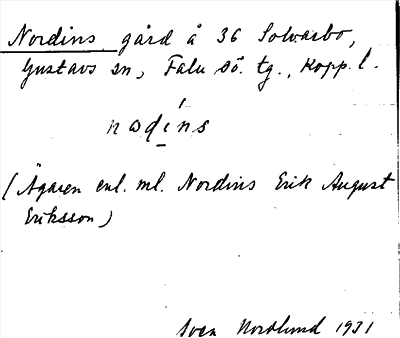 Nordins gård å 36 Solvarbo,
Gustavs sn, Falu sö. tg., Kopp. l.
nɷdíns
(Ägaren enl. ml. Nordins Erik August
Eriksson)
Sven Nordlund 1931